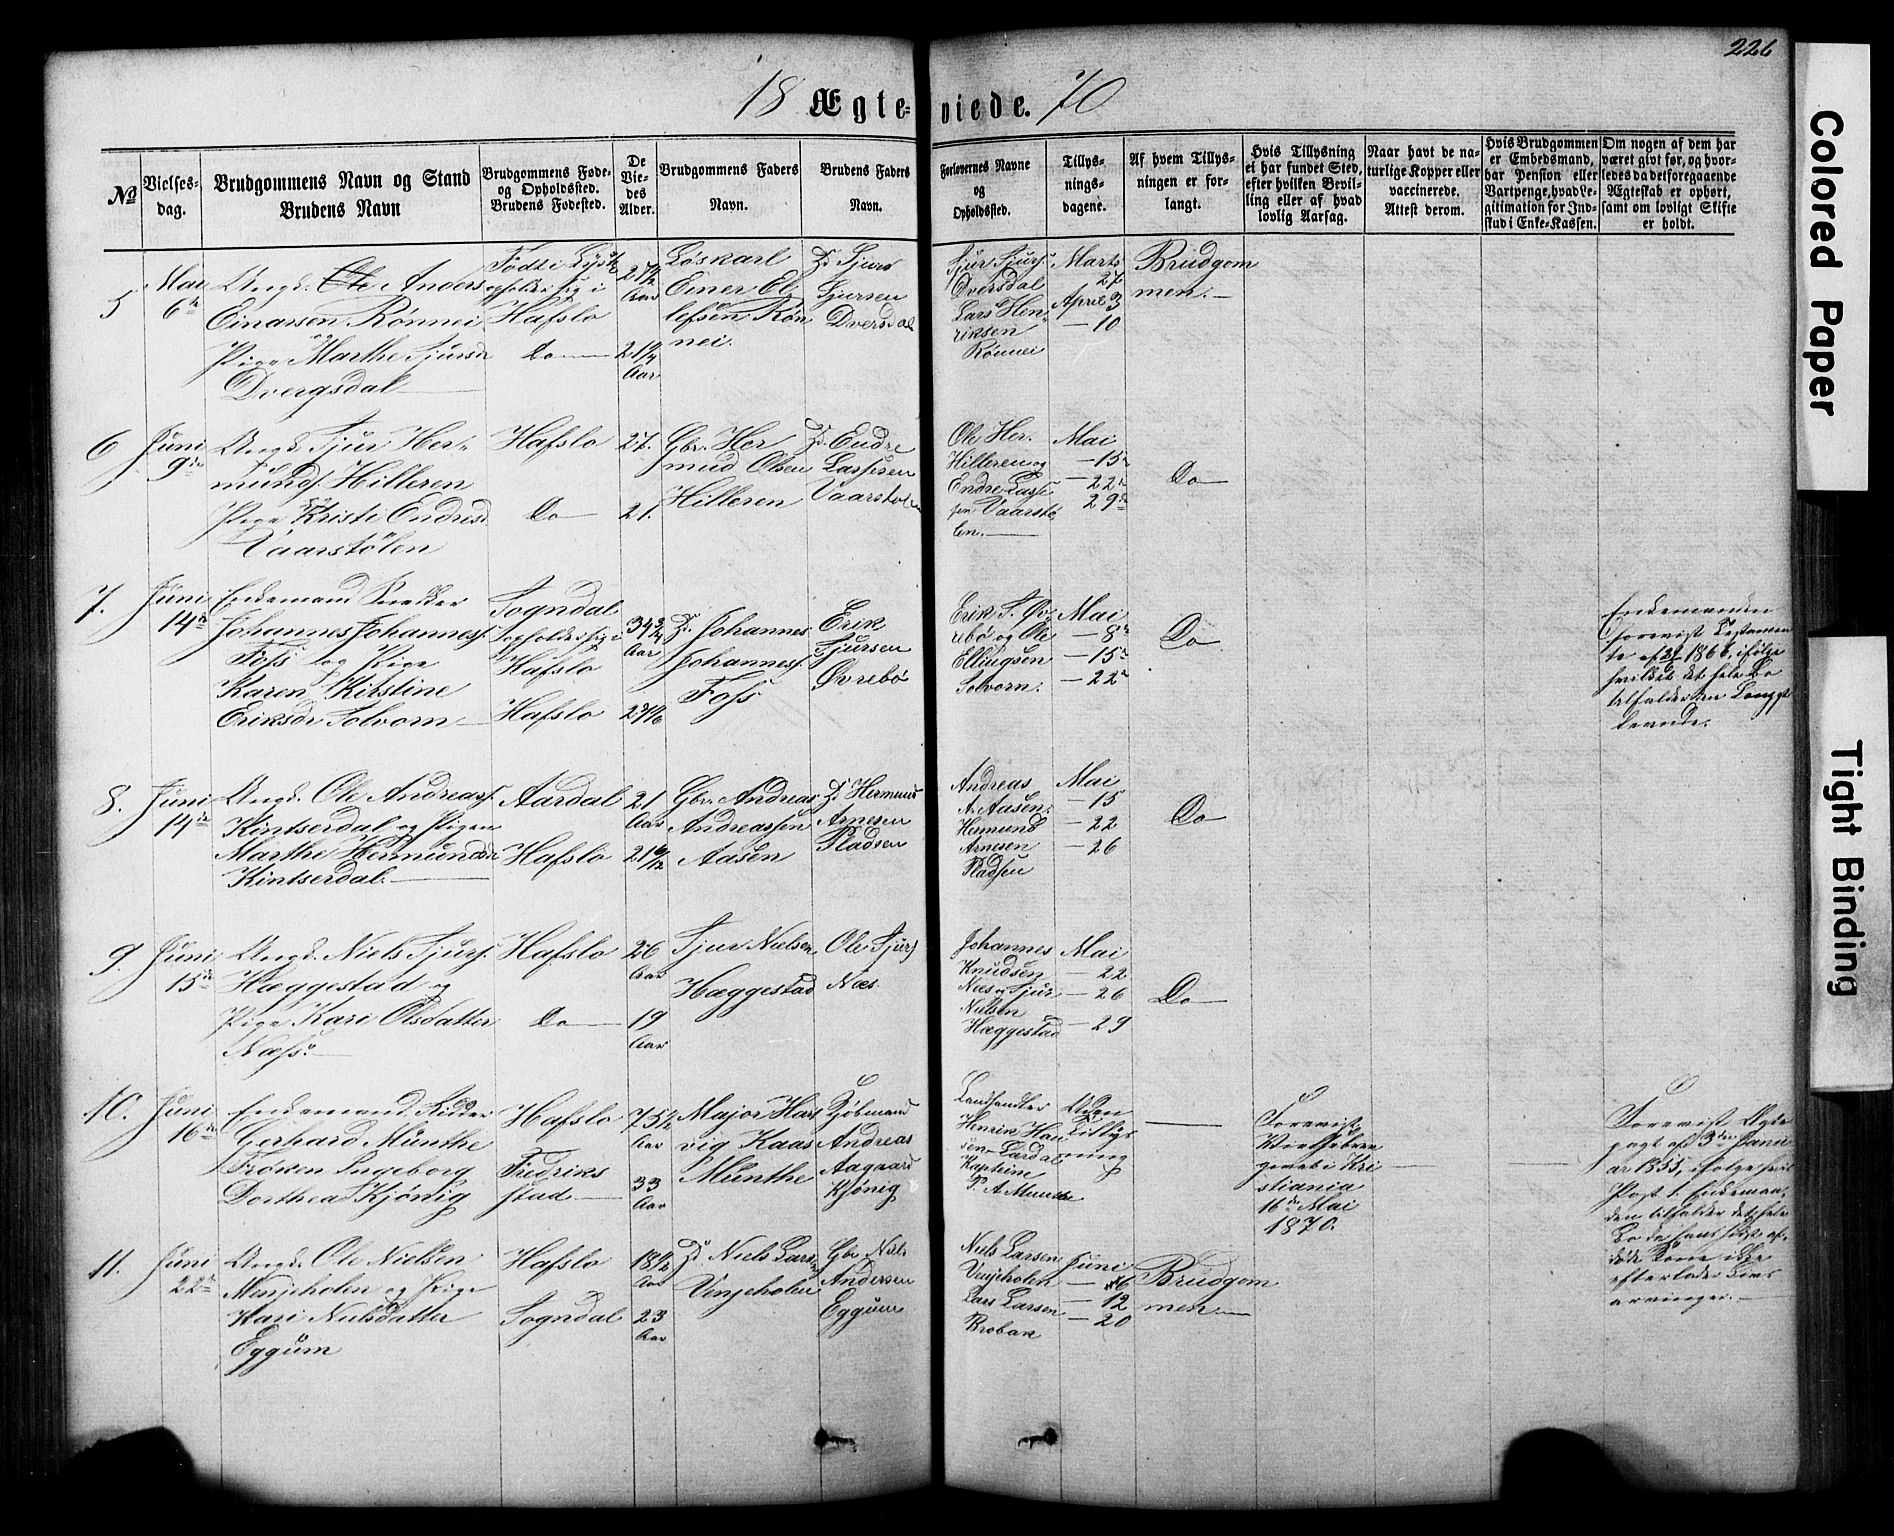 226
18 Ægte- viede. 70
No
Vielses-
dag.
Brudgommens Navn og Stand
Brudens Navn
Brudgommens Føde-
og Opholdssted.
Brudens Fødested.
De
Vie-
des
Alder.
Brudgommens Faders
Navn.
Brudens Faders
Navn.
Forlovernes Navne
og
Opholdssted.
Tillys-
nings-
dagene.
Af hvem Tillys-
ningen er for-
langt.
Hvis Tillysning
ei har fundet Sted,
efter hvilken Bevil-
ling eller af hvad
lovlig Aarsag.
Naar havt de na-
turlige Kopper eller
vaccinerede.
Attest derom.
Hvis Brudgommen
er Embedsmand,
har Pension eller
Vartpenge, hvad Le-
gitimation for Ind-
skud i Enke-Kassen.
Om nogen af dem har
været givt før, og hvor-
ledes da det foregaaende
Ægteskab er ophørt,
samt om lovligt Skifte
er holdt.
5
Mai
6te
Ungk. Ole Anders
Einarsen Rønnei
og
Pige Marthe Sjursd
Dvergsdal
Født i Lyst
opholder sig i
Hafslo
Do
Aar
Aar
Løskarl
Einer El
lefsen Røn
nei.
Sjur
Sjursen
Dversdal
Sjur Sjurs.
Dversdal
Lars Hen
riksen
Rønnei
Marts
27
April 3
– 10
Brudgom
men.
6
Juni
9de
Ungk. Sjur Her-
munds. Hilleren
Pige Kristi Endresd
Vaarstølen
Hafslo
Do
27.
21.
Gbr. Her
mund Olsen
Hilleren
Endre
Lassesen
Vaarstolen
Ole Her.
Hilleren og
Endre Lasse
sen Vaarstø
len.
Mai
– 15
– 22
29de
Do
7.
Juni
14de
Enkemand Snedker
Johannes Johanness.
Foss og Pige
Karen Kirstine
Eriksdr Solvorn
Sogndal
opholder sig i
Hafslo
Hafslo
34 3/4
Aar
Johannes
Johanness.
Foss
Erik
Sjursen
Øvrebø
Erik S. Øv
rebø og Ole
Ellingsen
Solvorn.
Mai
– 8de
– 15
– 22
Do
Enkemanden
forevist Testamen
te af 1866, ifølge
hvilket det hele Bo
tilfalder den Længst
levende.
8.
Juni
14de
Ungk. Ole Andreass.
Kintserdal og Pigen
Marthe Hermundsdr
Kintserdal.
Aardal
Hafslo
21
Aar
Gbr. Andreas
Andreassen
Aasen
Hermund
Arnesen
Pladsen
Andreas
A. Aasen.
Hermund
Arnesen
Pladsen
Mai
– 15
– 22
– 26
Do
9.
Juni
15de
Ungk. Niels Sjurs.
Hæggestad og
Pige Kari Olsdatter
Næss.
Hafslo
Do
26
Aar
19
Aar
Sjur Nielsen
Hæggestad
Ole Sjurs
Næs.
Johannes
Knudsen
Næs og Sjur
Nielsen
Hæggestad
Mai
– 22
– 26
– 29
Do
10.
Juni
16de
Enkemand Ridder
Gerhard Munthe
Frøken Ingeborg
Dorthea Kjønig
Hafslo
Fredriks
stad
75 1/2
Aar
33
Aar
Major Hart
vig Kaas
Munthe
Kjøbmand
Andreas
Aagaard
Kjønig
Landhandler
Henrik Han
sen Lærdal
Kaptein
P. A. Munthe
Uden
Tillys
ning
Forevist
Vielsebrev
givet i Kri
stiania
16de Mai
1870.
Forevist Ægte
pagt af 3die Janu
ar 1855, ifølge hvis
Post 1. Enkeman
den tilfalder det hele
Bo da hans sidst af-
døde Kone ikke
efterlader Livs
arvinger.
11.
Juni
22de
Ungk. Ole Nielsen
Venjeholen og Pige
Kari Nielsdatter
Eggum
Hafslo
Sogndal
18 1/2
Aar
23
Aar
Niels Larsen
Venjeholen
Gbr Niels
Andersen
Eggum
Niels Larsen
Venjeholen
Lars Larsen
Brobak
Juni
– 6
– 12
– 20
Brudgom
men
Colored Paper
Tight Binding